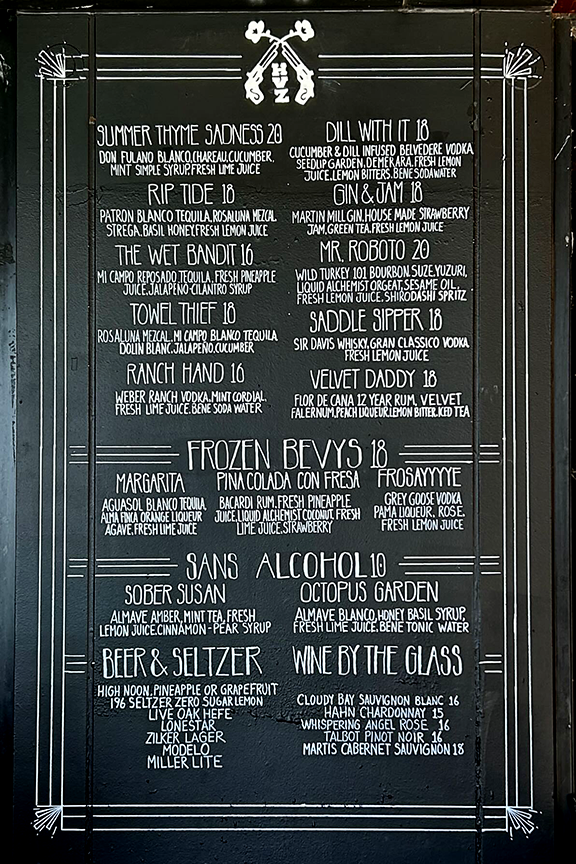 HUZ
SUMMER THYME SADNESS 20
DON FULANO BLANCO, CHAREAU, CUCUMBER,
MINT SIMPLE SYRUP, FRESH LIME JUICE
DILL WITH IT 18
CUCUMBER & DILL INFUSED BELVEDERE VODKA,
SEEDLIP GARDEN, DEMERARA, FRESH LEMON
JUICE, LEMON BITTERS, BENE SODA WATER
RIP TIDE 18
PATRON BLANCO TEQUILA, ROSALUNA MEZCAL,
STREGA, BASIL HONEY, FRESH LIME JUICE
GIN & JAM 18
MARTIN MILL GIN, HOUSE MADE STRAWBERRY
JAM, GREEN TEA, FRESH LEMON JUICE
THE WET BANDIT 16
MI CAMPO REPOSADO TEQUILA, FRESH PINEAPPLE
JUICE, JALAPEÑO-CILANTRO SYRUP
MR. ROBOTO 20
WILD TURKEY 101 BOURBON, SUZE, YUZURI,
LIQUID ALCHEMIST ORGEAT, SESAME OIL,
FRESH LEMON JUICE, SHIRODASHI SPRITZ
TOWEL THIEF 18
ROSALUNA MEZCAL, MI CAMPO BLANCO TEQUILA
DOLIN BLANC, JALAPEÑO, CUCUMBER
SADDLE SIPPER 18
SIR DAVIS WHISKY, GRAN CLASSICO VODKA,
FRESH LEMON JUICE
RANCH HAND 16
WEBER RANCH VODKA, MINT CORDIAL,
FRESH LIME JUICE, BENE SODA WATER
VELVET DADDY 18
FLOR DE CANA 12 YEAR RUM, VELVET
FALERNUM, PEACH LIQUEUR, LEMON BITTER, ICED TEA
FROZEN BEVYS 18
MARGARITA
AGUASOL BLANCO TEQUILA,
ALMA FINCA ORANGE LIQUEUR
AGAVE, FRESH LIME JUICE
PINA COLADA CON FRESA
BACARDI RUM, FRESH PINEAPPLE
JUICE, LIQUID ALCHEMIST COCONUT, FRESH
LIME JUICE, STRAWBERRY
FROSAYYYYE
GREY GOOSE VODKA
PAMA LIQUEUR, ROSE,
FRESH LEMON JUICE
SANS ALCOHOL 10
SOBER SUSAN
ALMAVE AMBER, MINT TEA, FRESH
LEMON JUICE, CINNAMON-PEAR SYRUP
OCTOPUS GARDEN
ALMAVE BLANCO, HONEY BASIL SYRUP,
FRESH LIME JUICE, BENE TONIC WATER
BEER & SELTZER
HIGH NOON, PINEAPPLE OR GRAPEFRUIT
196 SELTZER ZERO SUGAR LEMON
LIVE OAK HEFE
LONESTAR
ZILKER LAGER
MODELO
MILLER LITE
WINE BY THE GLASS
CLOUDY BAY SAUVIGNON BLANC 16
HAHN CHARDONNAY 15
WHISPERING ANGEL ROSE 16
TALBOT PINOT NOIR 16
MARTIS CABERNET SAUVIGNON 18